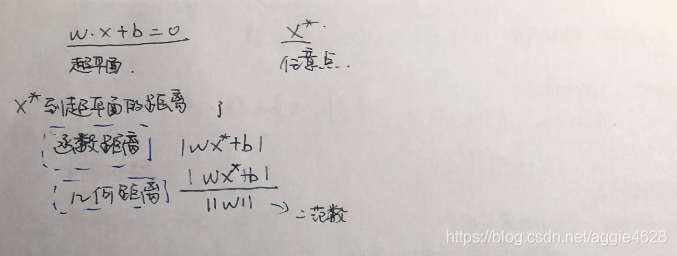 w·x+b=0 x*
超平面. 任意点.
x*到超平面的距离
函数距离 |wx*+b|
几何距离 |wx*+b| / ||w|| → 二范数
https://blog.csdn.net/aggie4628